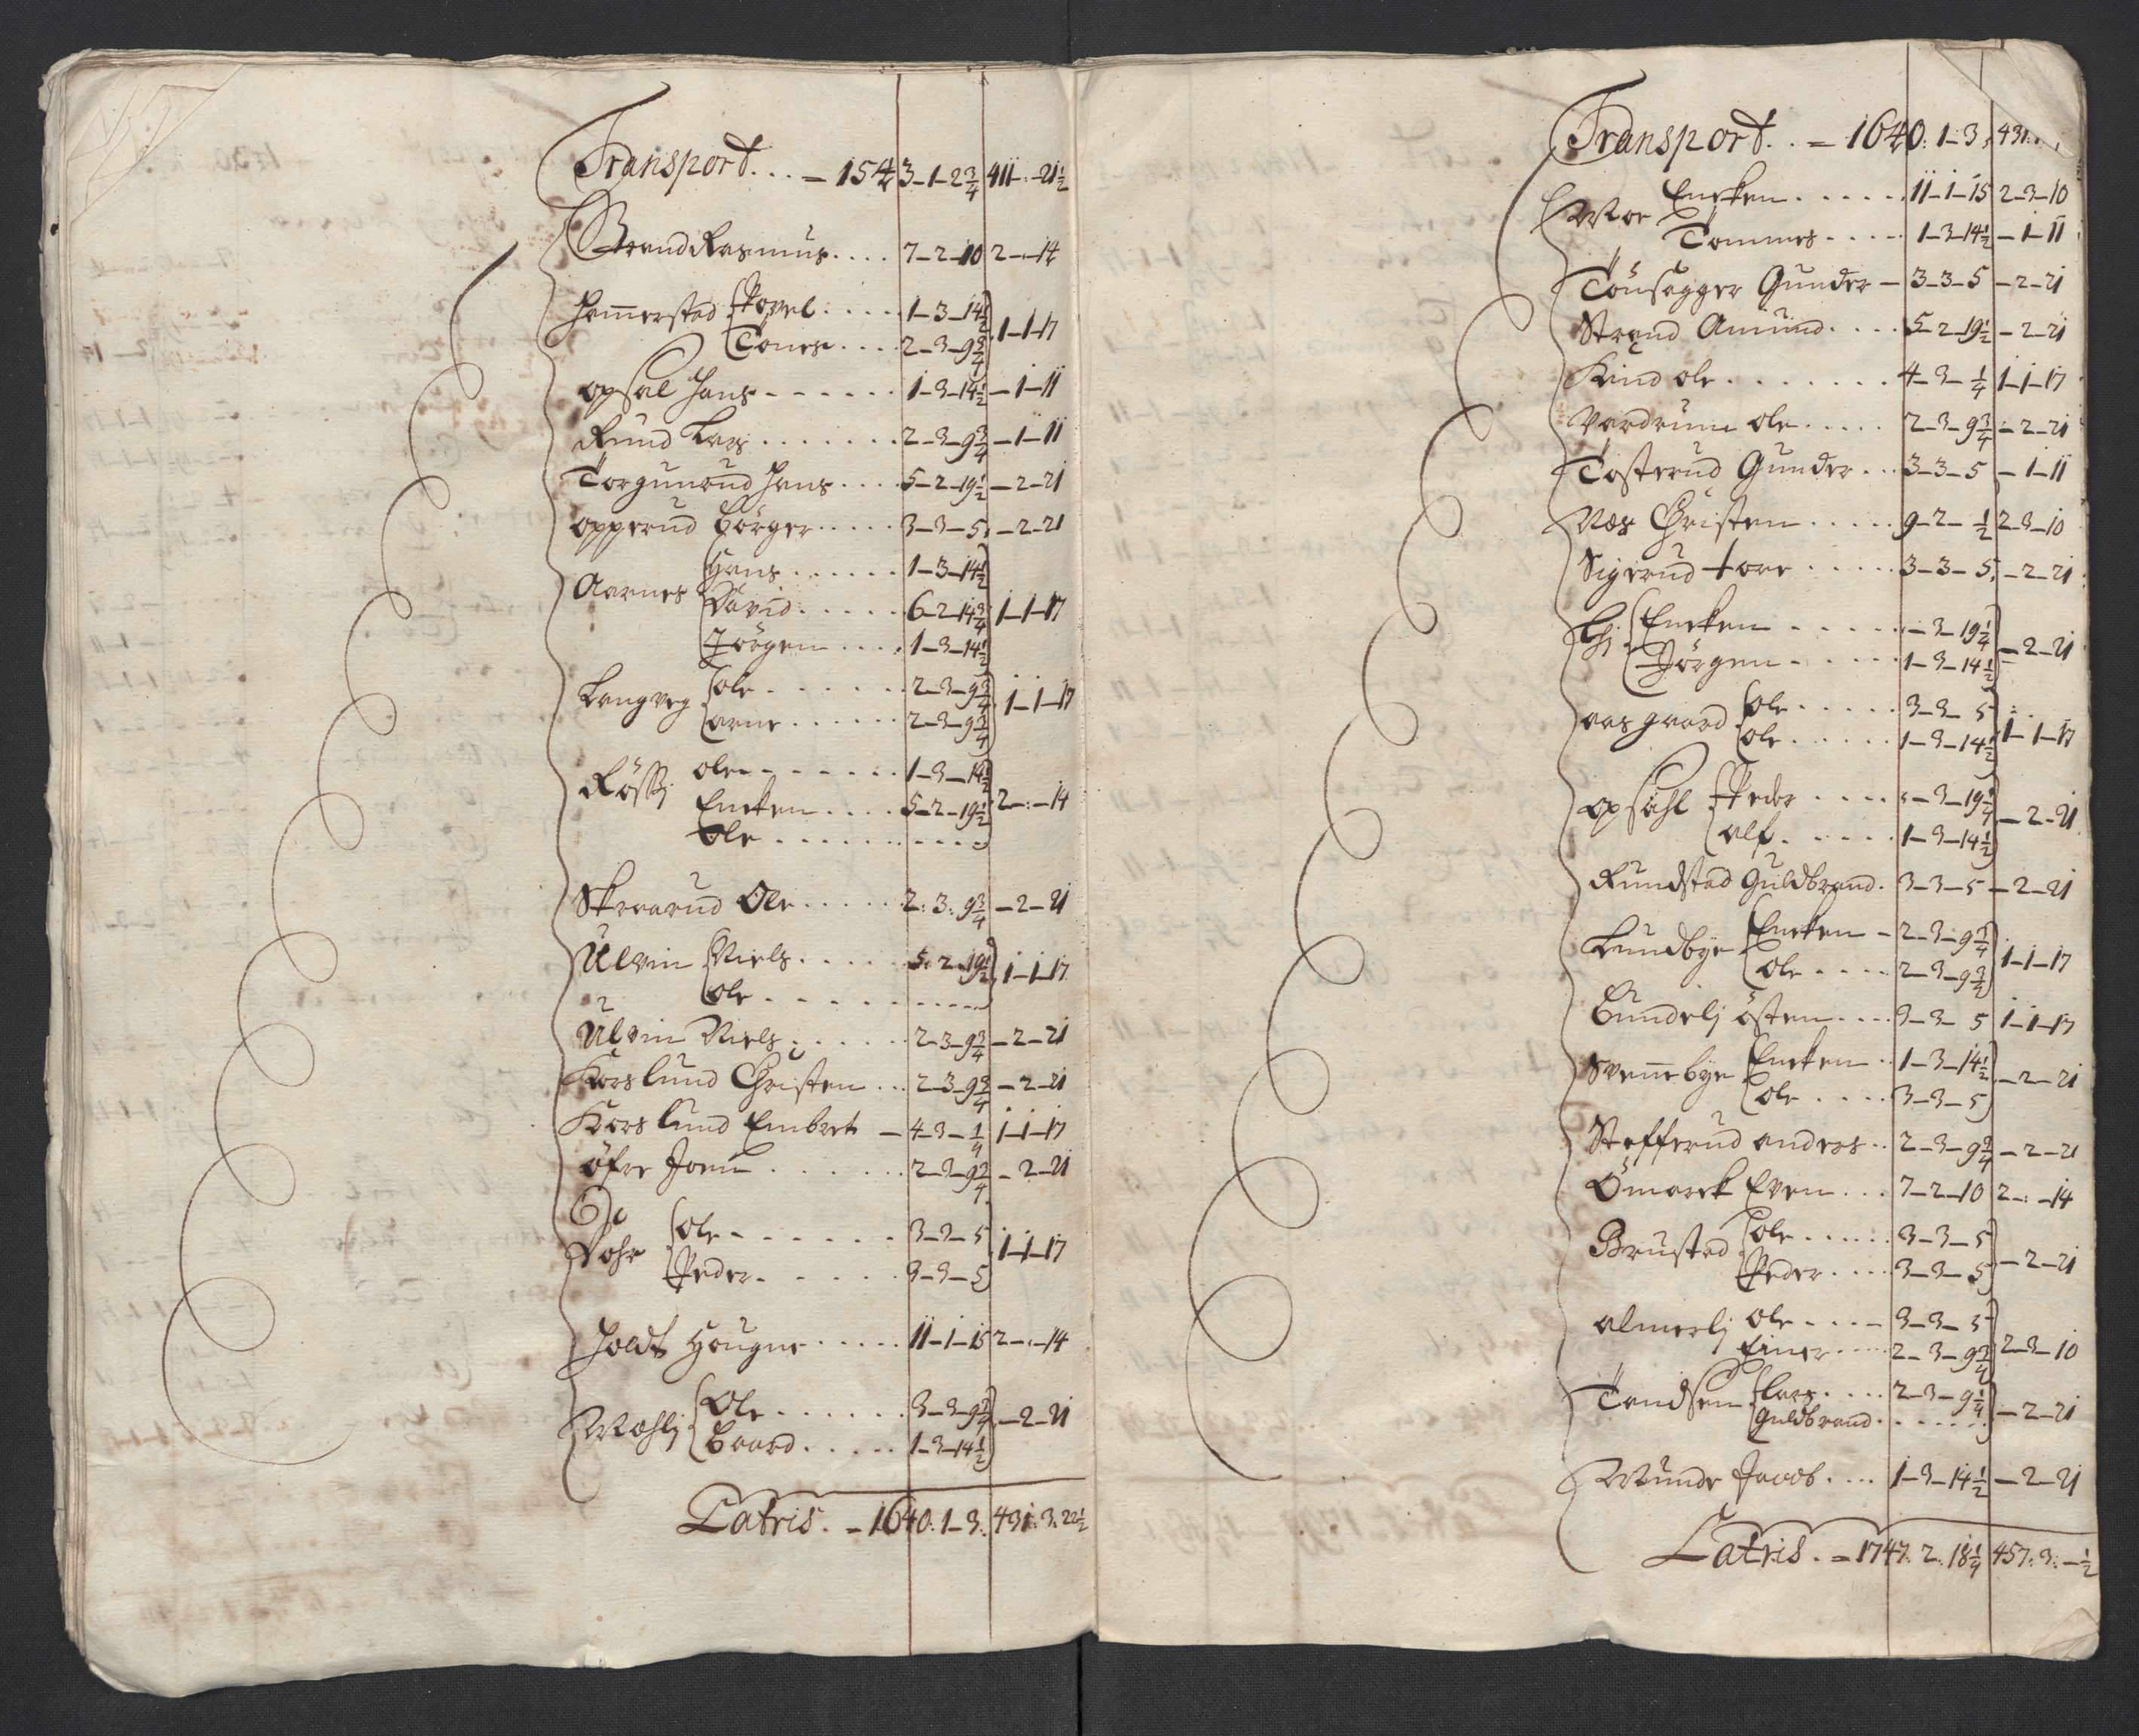 Transport . . . = 1543-1-2¾ 411-:-21½
Strand Rasmus . . . . 7-2-10 2-:-14
Hamerstad Povel . . . . . 1-3-14½
Tönes . . . . 2-3-9¾ 1-1-17
opsal Hans - - - - - - 1-3-14½ -1-11
Rund Lars . . . . . . . 2-3-9¾ -1-11
Torgunrud Hans . . . . 5-2-19½ -2-21
opperud Börger . . . . . 3-3-5. -2-21
Aarnes Hans . . . . . . 1-3-14½
David . . . . . 6-2-14¾ 1-1-17
Jörgen . . . . 1-3-14½
Langveg ole - . . . . . . 2-3-9¾
arne . . . . . . 2-3-9¾ 1-1-17
Rössi ole - - - - - - - 1-3-14½
Encken . . . . 5-2-19½ 2-:-14
Ole . . . . . . . . . . .
Skraarud Ole . . . . . 2:3:9¾ -2-21
Ulvin Niels . . . . . 5:2-19½ 1-1-17
ole . . . . . . . . . . .
Ulvin Niels . . . . . . 2-3-9¾ -2-21
Korslund Christen . . . 2-3-9¾ -2-21
Korslund Embret - 4-3-¼ 1-1-17
öfre Joen . . . . . . . 2-3-9¾ -2-21
Dohr ole - - - - - - - 3-3-5
Peder . . . . . . 3-3-5 1-1-17
Holdt Hougne . . . . . 11-1-15 2-:-14
Mohli Ole . . . . . . 3-3-9¾ -2-21
Baard . . . . . 1-3-14½
Latris . = 1640:1-3: 431:3:22½
Transport . . = 1640:1-3: 431:
Moe Encken . . . . . . 11-1-15 2-3-10
Tommes - - - - 1-3-14½ -1-11
Tönsagger Gunder - 3-3-5 -2-21
Strand Amund . . . . 5-2-19½ -2-21
Kind ole . . . . . . . . 4-3-¼ 1-1-17
Vardrum ole . . . . . 2-3-9¾ -2-21
Tosterud Gunder . . . 3-3-5 -1-11
Næs Christen . . . . . 9-2-½ 2-3-10
Sigerud tore . . . . . 3-3-5. -2-21
Lhi Encken - - - - - - -3-19¼ -2-21
Jörgen - - - - - - 1-3-14½
aasgaard ole . . . . . 3-3-5
ole . . . . . 1-3-14½ 1-1-17
opsahl Peder . . . . . -3-19¼
alf . . . . . . 1-3-14½ -2-21
Rundstad Guldbrand . 3-3-5 -2-21
Lundbye Encken - 2-3-9¾
ole - - - - - 2-3-9¾ 1-1-17
Bundeli östen . . . . 3-3-5 1-1-17
Svennebye Encken . . 1-3-14½ -2-21
ole . . . . 3-3-5
Stefferud anders . . 2-3-9¾ -2-21
Ömarck Even . . . 7-2-10 2-:-14
Brustad ole . . . . . . 3-3-5
Peder . . . . 3-3-5 -2-21
almerli ole - - - - 3-3-5
Einer . . . . 2-3-9¾ 2-3-10
Tandsem Lars . . . . 2-3-9¼ -2-21
Guldbrand . . . . . .
Munde Jacob . . . . 1-3-14½ -2-21
Latris . = 1747:2:18¼ 457:3:-½